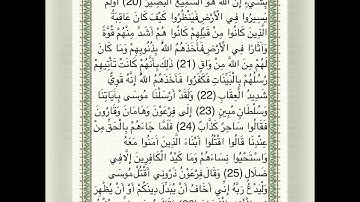 بِشَيْءٍ إِنَّ اللَّهَ هُوَ السَّمِيعُ الْبَصِيرُ (20) أَوَلَمْ
يَسِيرُوا فِي الْأَرْضِ فَيَنْظُرُوا كَيْفَ كَانَ عَاقِبَةُ
الَّذِينَ كَانُوا مِنْ قَبْلِهِمْ كَانُوا هُمْ أَشَدَّ مِنْهُمْ قُوَّةً
وَآثَارًا فِي الْأَرْضِ فَأَخَذَهُمُ اللَّهُ بِذُنُوبِهِمْ وَمَا كَانَ
لَهُمْ مِنَ اللَّهِ مِنْ وَاقٍ (21) ذَلِكَ بِأَنَّهُمْ كَانَتْ تَأْتِيهِمْ
رُسُلُهُمْ بِالْبَيِّنَاتِ فَكَفَرُوا فَأَخَذَهُمُ اللَّهُ إِنَّهُ قَوِيٌّ
شَدِيدُ الْعِقَابِ (22) وَلَقَدْ أَرْسَلْنَا مُوسَى بِآيَاتِنَا
وَسُلْطَانٍ مُبِينٍ (23) إِلَى فِرْعَوْنَ وَهَامَانَ وَقَارُونَ
فَقَالُوا سَاحِرٌ كَذَّابٌ (24) فَلَمَّا جَاءَهُمْ بِالْحَقِّ مِنْ
عِنْدِنَا قَالُوا اقْتُلُوا أَبْنَاءَ الَّذِينَ آمَنُوا مَعَهُ
وَاسْتَحْيُوا نِسَاءَهُمْ وَمَا كَيْدُ الْكَافِرِينَ إِلَّا فِي
ضَلَالٍ (25) وَقَالَ فِرْعَوْنُ ذَرُونِي أَقْتُلْ مُوسَى
وَلْيَدْعُ رَبَّهُ إِنِّي أَخَافُ أَنْ يُبَدِّلَ دِينَكُمْ أَوْ أَنْ يُظْهِرَ